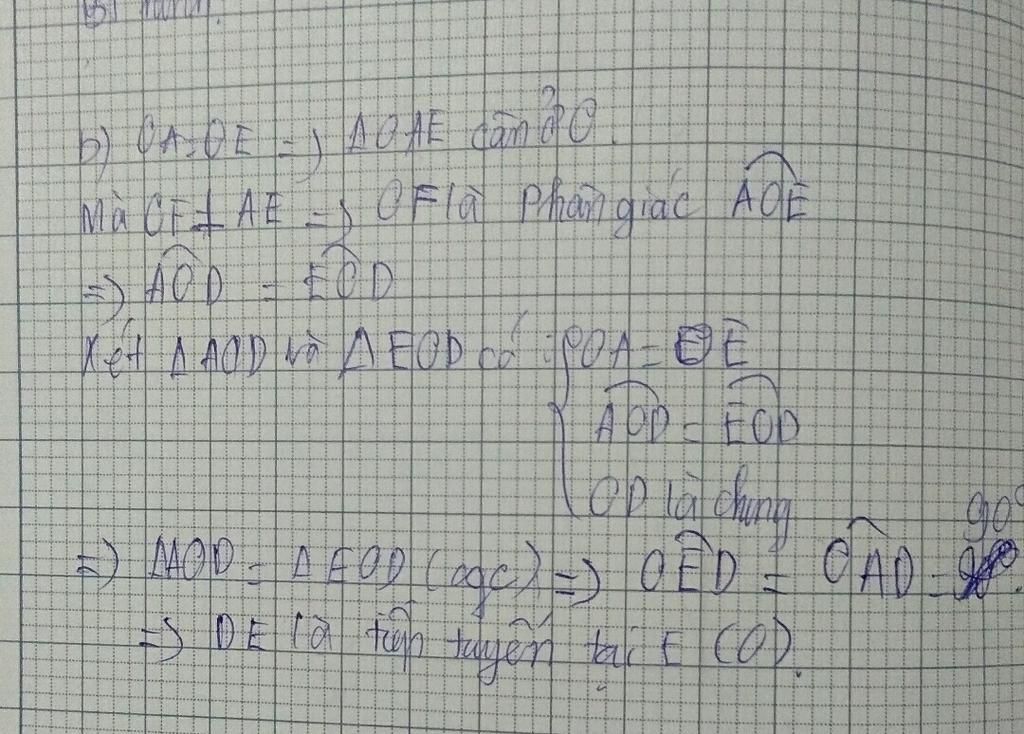 b) OA = OE => ΔOAE cân ở O.
Mà OF ⊥ AE => OF là phân giác AOE
=> AOD = EOD
Xét ΔAOD và ΔEOD có : { OA = OE
AOD = EOD
OD là chung
=> ΔAOD = ΔEOD (cgc) => OED = OAD = 90°.
=> DE là tiếp tuyến tại E (O).